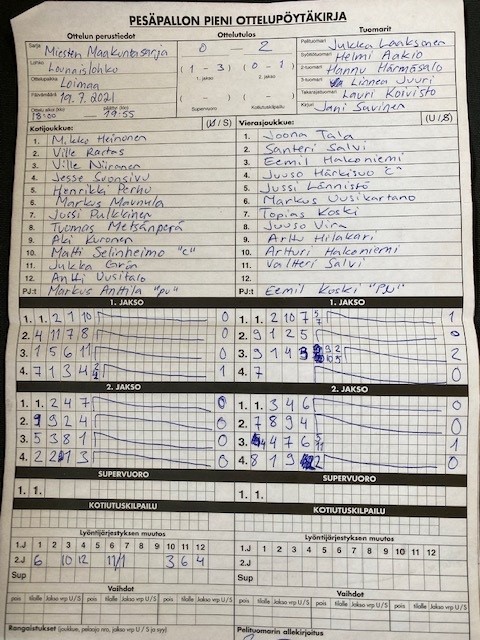 PESÄPALLON PIENI OTTELUPÖYTÄKIRJA
Ottelun perustiedot
Ottelutulos
Tuomarit
Sarja Miesten Maakuntasarja
0 - 2
Pelituomari Jukka Laaksonen
Syöttötuomari Helmi Aakio
Lohko Lounaislohko
(1 - 3) 1. jakso
(0 - 1) 2. jakso
2-tuomari Hannu Härmäsalo
Ottelupaikka Loimaa
3-tuomari Linnea Juuri
Päivämäärä 19.7.2021
( - ) Supervuoro
( - ) Kotiutuskilpailu
Takarajatuomari Lauri Koivisto
Ottelu alkoi (klo) 18:00 päättyi (klo) 19:55
Kirjuri Jani Savinen
Kotijoukkue: (U / S)
Vierasjoukkue: (U / S)
1. Mikko Heinonen
1. Joona Tala
2. Ville Rastas
2. Santeri Salvi
3. Ville Niiranen
3. Eemil Hakoniemi
4. Jesse Suonsivu
4. Juuso Härkisuo C"
5. Henrikki Perho
5. Jussi Lännistö
6. Markus Maunula
6. Markus Uusikartano
7. Jussi Pulkkinen
7. Topias Koski
8. Tuomas Metsänperä
8. Juuso Vira
9. Aki Kuronen
9. Arttu Hilakari
10. Matti Selinheimo "C"
10. Artturi Hakoniemi
11. Jukka Grön
11. Valtteri Salvi
12. Antti Uusitalo
12.
PJ:t Markus Anttila "PJ"
PJ:t Eemil Koski "PJ"
1. JAKSO
1. JAKSO
1. 1. 2 1 10 0
1. 1. 2 10 7 5 7 1
2. 4 11 7 8 0
2. 9 1 2 5 0
3. 1 5 6 11 0
3. 9 1 4 3 2
4. 7 1 3 4 1
4. 7 0
2. JAKSO
2. JAKSO
1. 1. 2 4 7 0
1. 1. 3 4 6 0
2. 9 9 2 4 0
2. 7 8 9 4 0
3. 5 3 8 1 0
3. 4 4 7 6 1
4. 2 2 1 3 0
4. 8 1 9 2 0
SUPERVUORO
SUPERVUORO
1. 1.
1. 1.
KOTIUTUSKILPAILU
KOTIUTUSKILPAILU
Lyöntijärjestyksen muutos
Lyöntijärjestyksen muutos
1.J 1 2 3 4 5 6 7 8 9 10 11 12
1.J 1 2 3 4 5 6 7 8 9 10 11 12
2.J 6 10 12 11/1 3 6 4
2.J
Sup
Sup
Vaihdot
Vaihdot
pois tilalle Jakso vrp U / S pois tilalle Jakso vrp U / S
pois tilalle Jakso vrp U / S pois tilalle Jakso vrp U / S
Rangaistukset (joukkue, pelaaja nro, jakso vrp U/S ja syy)
Pelituomarin allekirjoitus